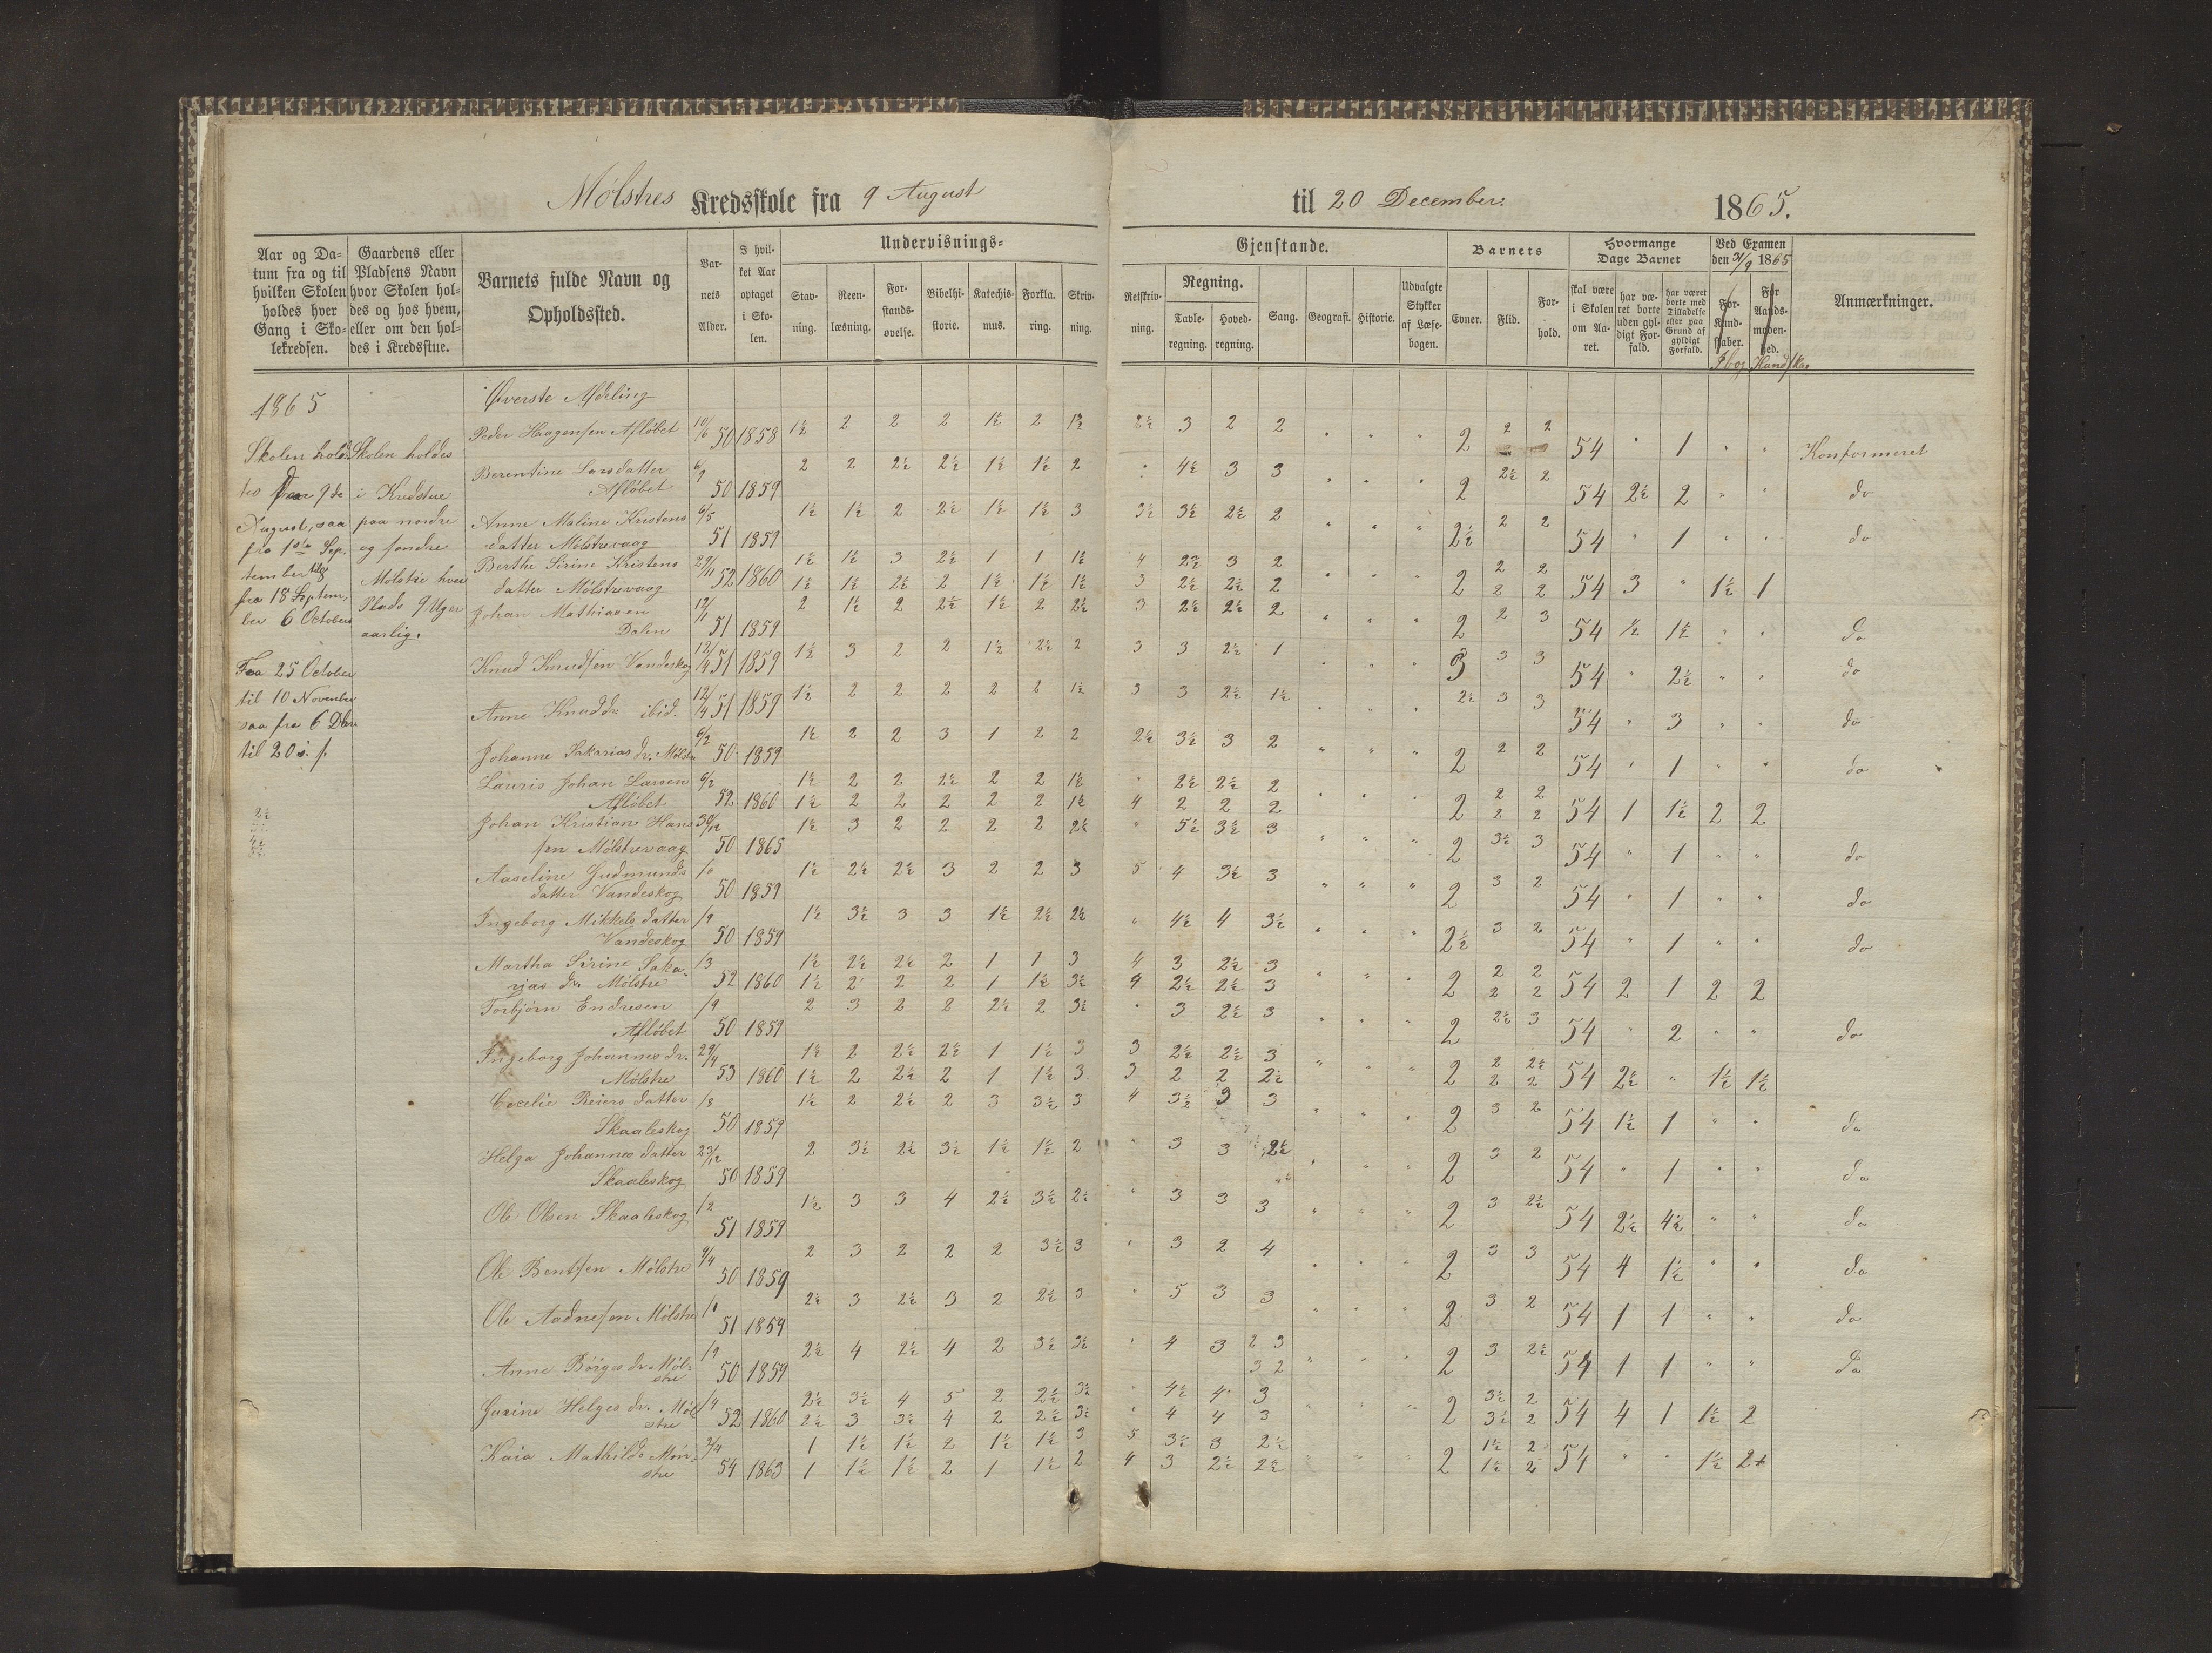 Mølstres Kredsskole fra 9 August til 20 December 1865.
Aar og Da-
tum fra og til
hvilken Skolen
holdes hver
Gang i Sko-
lekredsen.
Gaardens eller
Pladsens Navn
hvor Skolen hol-
des og hos hvem,
eller om den hol-
des i Kredsstue.
Barnets fulde Navn og
Opholdssted.
Bar-
nets
Alder.
I hvil-
ket Aar
optaget
i Sko-
len.
Undervisnings-
Stav-
ning.
Reen-
læsning.
For-
stands-
øvelse.
Bibelhi-
storie.
Katechis-
mus.
Forkla-
ring.
Skriv-
ning.
Gjenstande.
Retskriv-
ning.
Regning.
Tavle-
regning.
Hoved-
regning.
Sang.
Geografi.
Historie.
Udvalgte
Stykker
af Læse-
bogen.
Barnets
Evner.
Flid.
For-
hold.
Hvormange
Dage Barnet
skal være
i Skolen
om Aa-
ret.
har væ-
ret borte
uden gyl-
digt For-
fald.
har været
borte med
Tilladelse
eller paa
Grund af
gyldigt
Forfald.
Ved Examen
den 21/9 1865
For-
Kund-
skaber.
For
Aands-
moden-
hed.
Anmærkninger.
1865
Skolen hold-
tes fra 9de
August, saa
fra 1ste Sep-
tember til
fra 18 Septem-
ber 6 October
Fra 25 October
til 10 November
saa fra 6 Dbr
til 20 s. s.
Skolen holdes
i Kredstue
paa nordre
og søndre
Mølstre hver
Plads 9 Uger
aarlig.
Øverste Afdeling
Peder Haagensen Afløbet 10/6 50 1858 1½ 2 2 2 1½ 2 1½ 2½ 3 2 2 " " " 2 2 2 54 " 1 " " Konformeret
Berentine Larsdatter
Afløbet 6/9 50 1859 2 2 2½ 2½ 1½ 1½ 2 " 4½ 3 3 " " " 2 2½ 2 54 2½ 2 " " do
Anne Maline Kristens
datter Mølstrevaag 6/5 51 1859 1½ 1½ 2 2½ 1½ 1½ 3 3½ 3½ 2½ 2 " " " 2½ 2 2 54 " 1 " " do
Berthe Sirine Kristens 29/11 52 1860 1½ 1½ 3 2½ 1 1 1½ 4 2½ 3 2
datter Mølstrevaag 1½ 1½ 2½ 2 1½ 1½ 1½ 3 2½ 2½ 2 " " " 2 2 2 2 2 54 3 " 1½ 1
Johan Mathiasen
Dalen 12/11 51 1859 2 1½ 2 2½ 1½ 2 2½ 3 2½ 2½ 2 " " " 2 2 3 54 ½ 1½ " " do
Knud Knudsen Vandeskog 12/4 51 1859 1½ 3 2 2 1½ 2½ 2 3 3 2½ 1 " " " 3 3 3 54 " 2½ " " do
Anne Knudsdr ibid. 12/4 51 1859 1½ 2 2 2 2 2 1½ 3 3 2½ 1½ " " " 2½ 3 3 54 " 3 " " do
Johanne Sakarias dr. Mølstre 6/2 50 1859 1½ 2 2 3 1 2 2 2½ 3½ 3 2 " " " 2 2 2 54 " 1 " " do
Lauris Johan Larsen 6/2 1½ 2 2 2½ 2 2 1½ " 2½ 2½ 2
Afløbet 52 1860 1½ 2 2 2 2 2 1½ 4 2 2 2 " " " 2 2 2 2 2 54 1 1½ 2 2
Johan Kristian Han-
sen Mølstrevaag 30/12 50 1865 1½ 3 2 2 2 2 2½ " 5½ 3½ 3 " " " 2 3½ 3 54 " 1 " " do
Aaseline Gudmunds
datter Vandeskog 50 1859 1½ 2½ 2½ 3 2 2 3 5 4 3½ 3 " " " 2 3 2 54 " 1 " " do
Ingeborg Mikkels datter
Vandeskog /9 50 1859 1½ 3½ 3 3 1½ 2½ 2½ " 4½ 4 3½ " " " 2½ 3 2 54 " 1 " " do
Martha Sirine Saka- /3 1½ 2½ 2½ 2 1 1 3 4 3 2½ 3
rias dr. Mølstre 52 1860 1½ 2 2 2 1 1½ 3½ 4 2½ 2½ 3 " " " 2 2 2 2 2 54 2 1 2 2
Torbjørn Endresen
Afløbet /9 50 1859 2 3 2 2 2½ 2 3½ " 3 2½ 3 " " " 2 2½ 3 54 " 2 " " do
Ingeborg Johannes dr. 29/4 1½ 2 2½ 2½ 1 1½ 3 3 2½ 2½ 3
Mølstre 53 1860 1½ 2 2½ 2 1 1½ 3 3 2 2 2½ " " " 2 2 2½ 2 2 54 2½ " 1½ 1½
Cecelie Reiers datter
Skaaleskog /8 50 1859 1½ 2 2½ 2 3 3½ 3 4 3½ 3 3 " " " 2 3 2 54 1½ 1 " " do
Helga Johannes datter
Skaaleskog 23/12 50 1859 2 3½ 2½ 3½ 1½ 1½ 2 " 3 3 2½ " " " 2 3 2 54 " 1 " " do
Ole Olsen Skaaleskog /2 51 1859 1½ 3 3 4 2½ 3½ 2½ " 3 3 3 " " " 2 3 2½ 54 2½ 4½ " " do
Ole Bentsen Mølstre 9/4 50 1859 2 3 2 2 2 3½ 3 " 3 2 4 " " " 2 3 3 54 4 1½ " " do
Ole Aadnesen Mølstre 51 1859 2½ 3 2½ 3 2 2½ 3 " 5 3 3 " " " 2 3 2 54 1 1 " " do
Anne Børges dr. Møl-
stre /9 50 1859 2½ 4 2½ 4 2 3½ 3½ " 4 3 2 3 3 2 " " " 2 3 2½ 54 1 1 " " do
Gurine Helges dr. Møl- /4 2½ 3½ 4 5 2 2½ 3½ " 4½ 4 3
stre 52 1860 2½ 3 3½ 4 2 2½ 3½ " 4 4 3 " " " 2 3½ 2 3½ 2 54 4 1 1½ 2
Kaia Mathilde Møn- 1 1½ 1½ 2 1½ 1½ 3 5 3½ 3 2½
stre 54 1863 1 1½ 1½ 2 1 1½ 2 4 3 2½ 2½ " " " 2 1½ 2 1½ 2 54 " " 1½ 2+